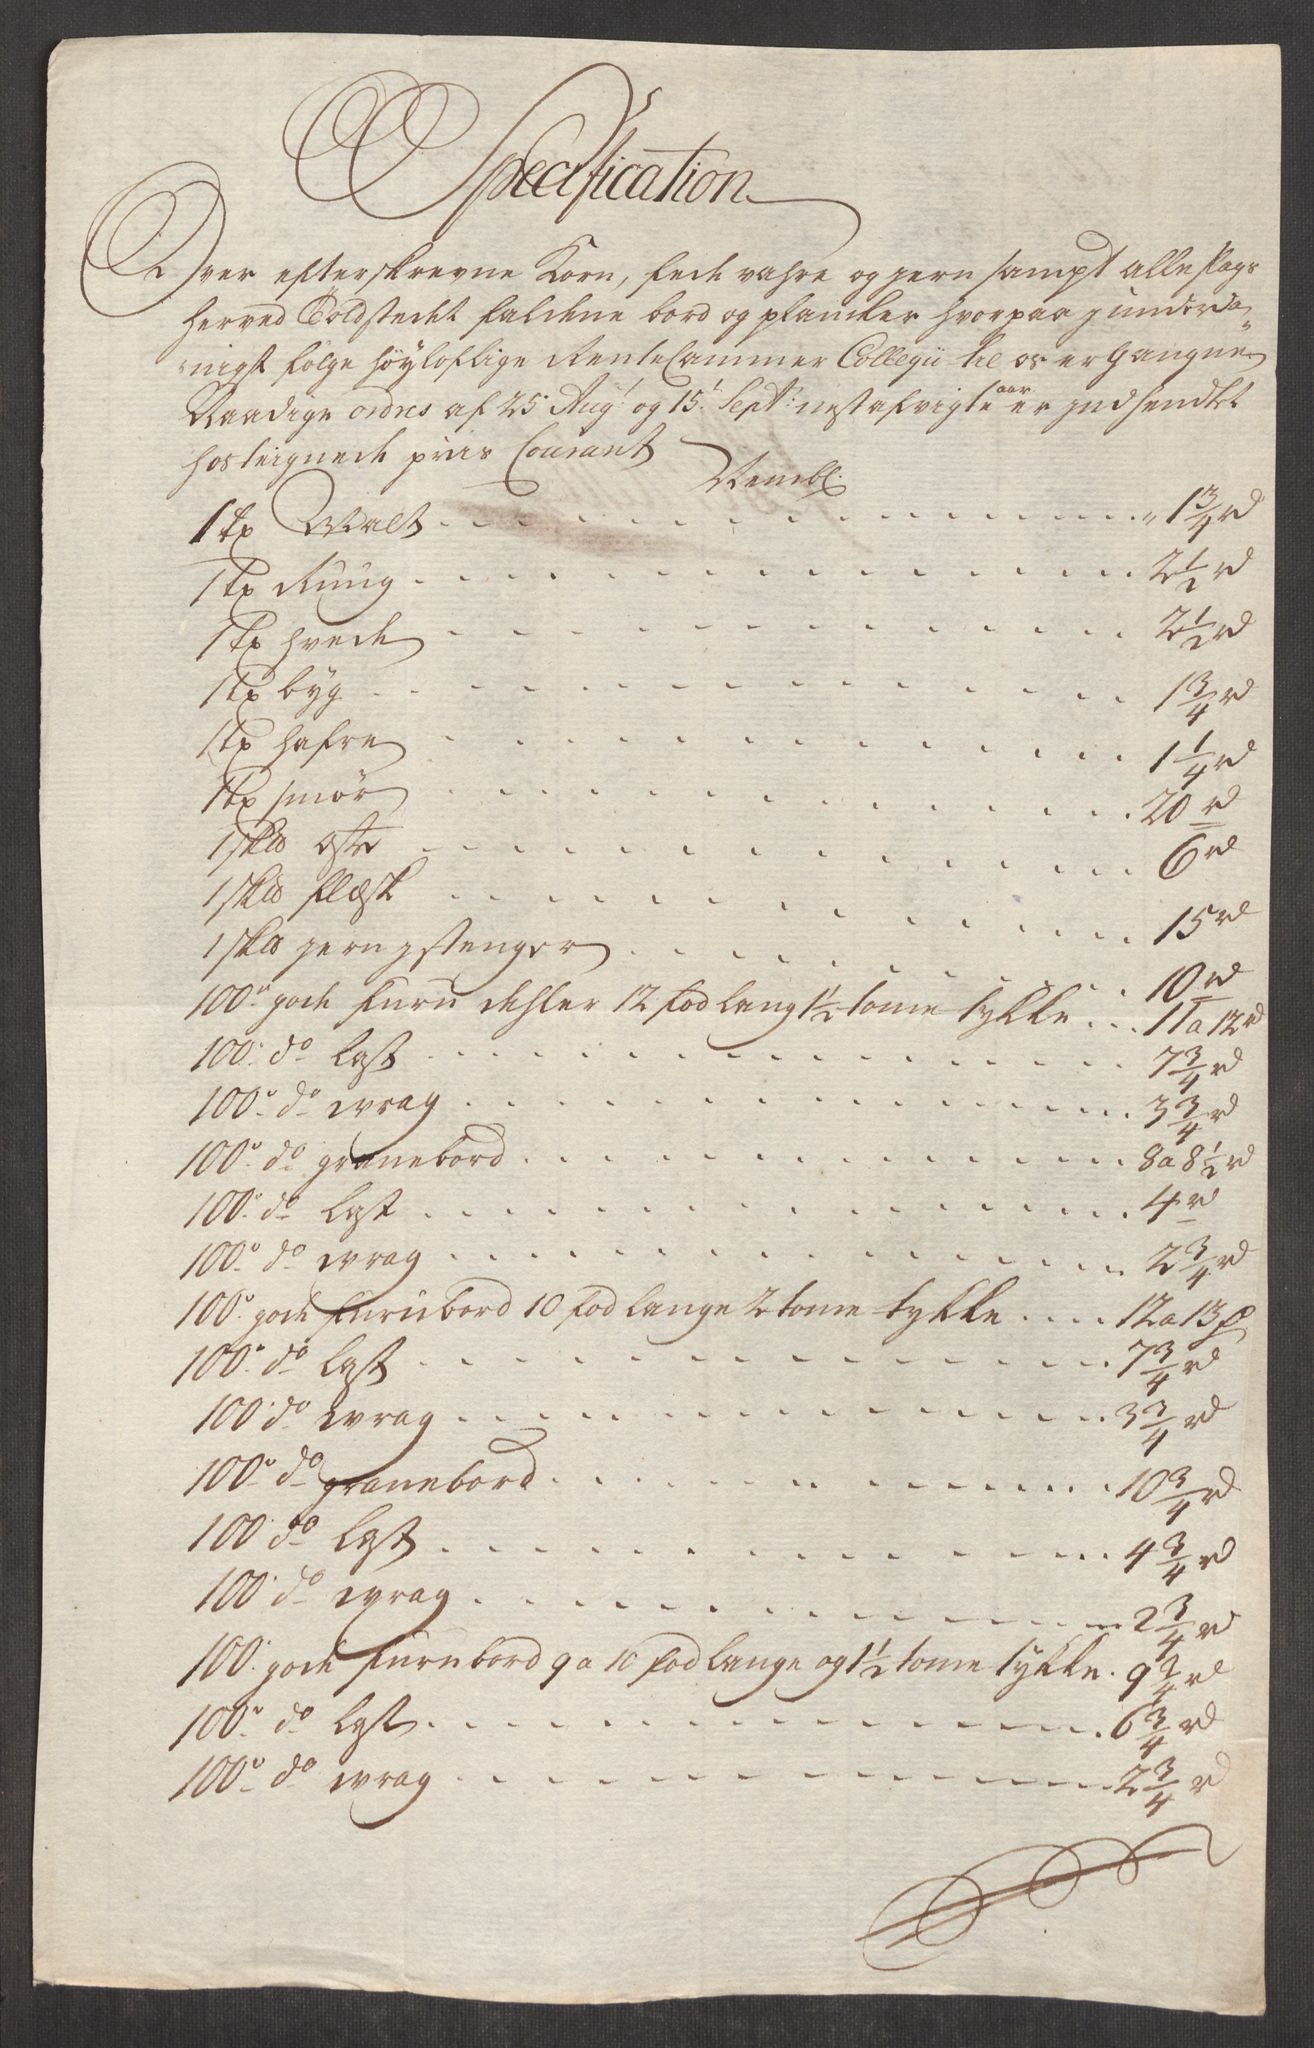 Specification
Over efterskrevne Korn, fede vahre og jern sampt alle slags
herved Toldstedet faldene bord og plancker hvorpaa j underda
nigst følge høyloflige Rente Cammer Collegii til os er gangne
Naadige ordres af 25. Aug: og 15. Sept: nest afvigte aar er jndsendtet
hosteignede pris Courant
Nembl:
1 tø Malt 1 3/4 rd
1 tø Rüüg 2 1/2 rd
1 tø hvede 2 1/2 rd
1 tø byg 1 3/4 rd
1 tø hafre 1 1/4 rd
1 tø smør 20 rd
1 skld oste 6 rd
1 skld flæsk 15 rd
1 skld jern j stenger 10 rd
100: gode furu dehler 12 fod lang 1 1/2 tome tykke 11 a 12 rd
100: do lest 7 3/4 rd
100: do wrag 3 3/4 rd
100: do granebord 8 a 8 1/2 rd
100: do lest 4 rd
100: do wrag 2 3/4 rd
100: gode furubord 10 fod lange 2 tome tykke 12 a 13
100: do lest 7 3/4 rd
100: do wrag 3 3/4 rd
100: do granebord 10 3/4 rd
100: do lest 4 3/4 rd
100: do wrag 2 3/4 rd
100: gode furubord 9 a 10 fod lange og 1 1/2 tome tykke 9 3/4 rd
100: do lest 6 3/4 rd
100: do wrag 2 3/4 rd